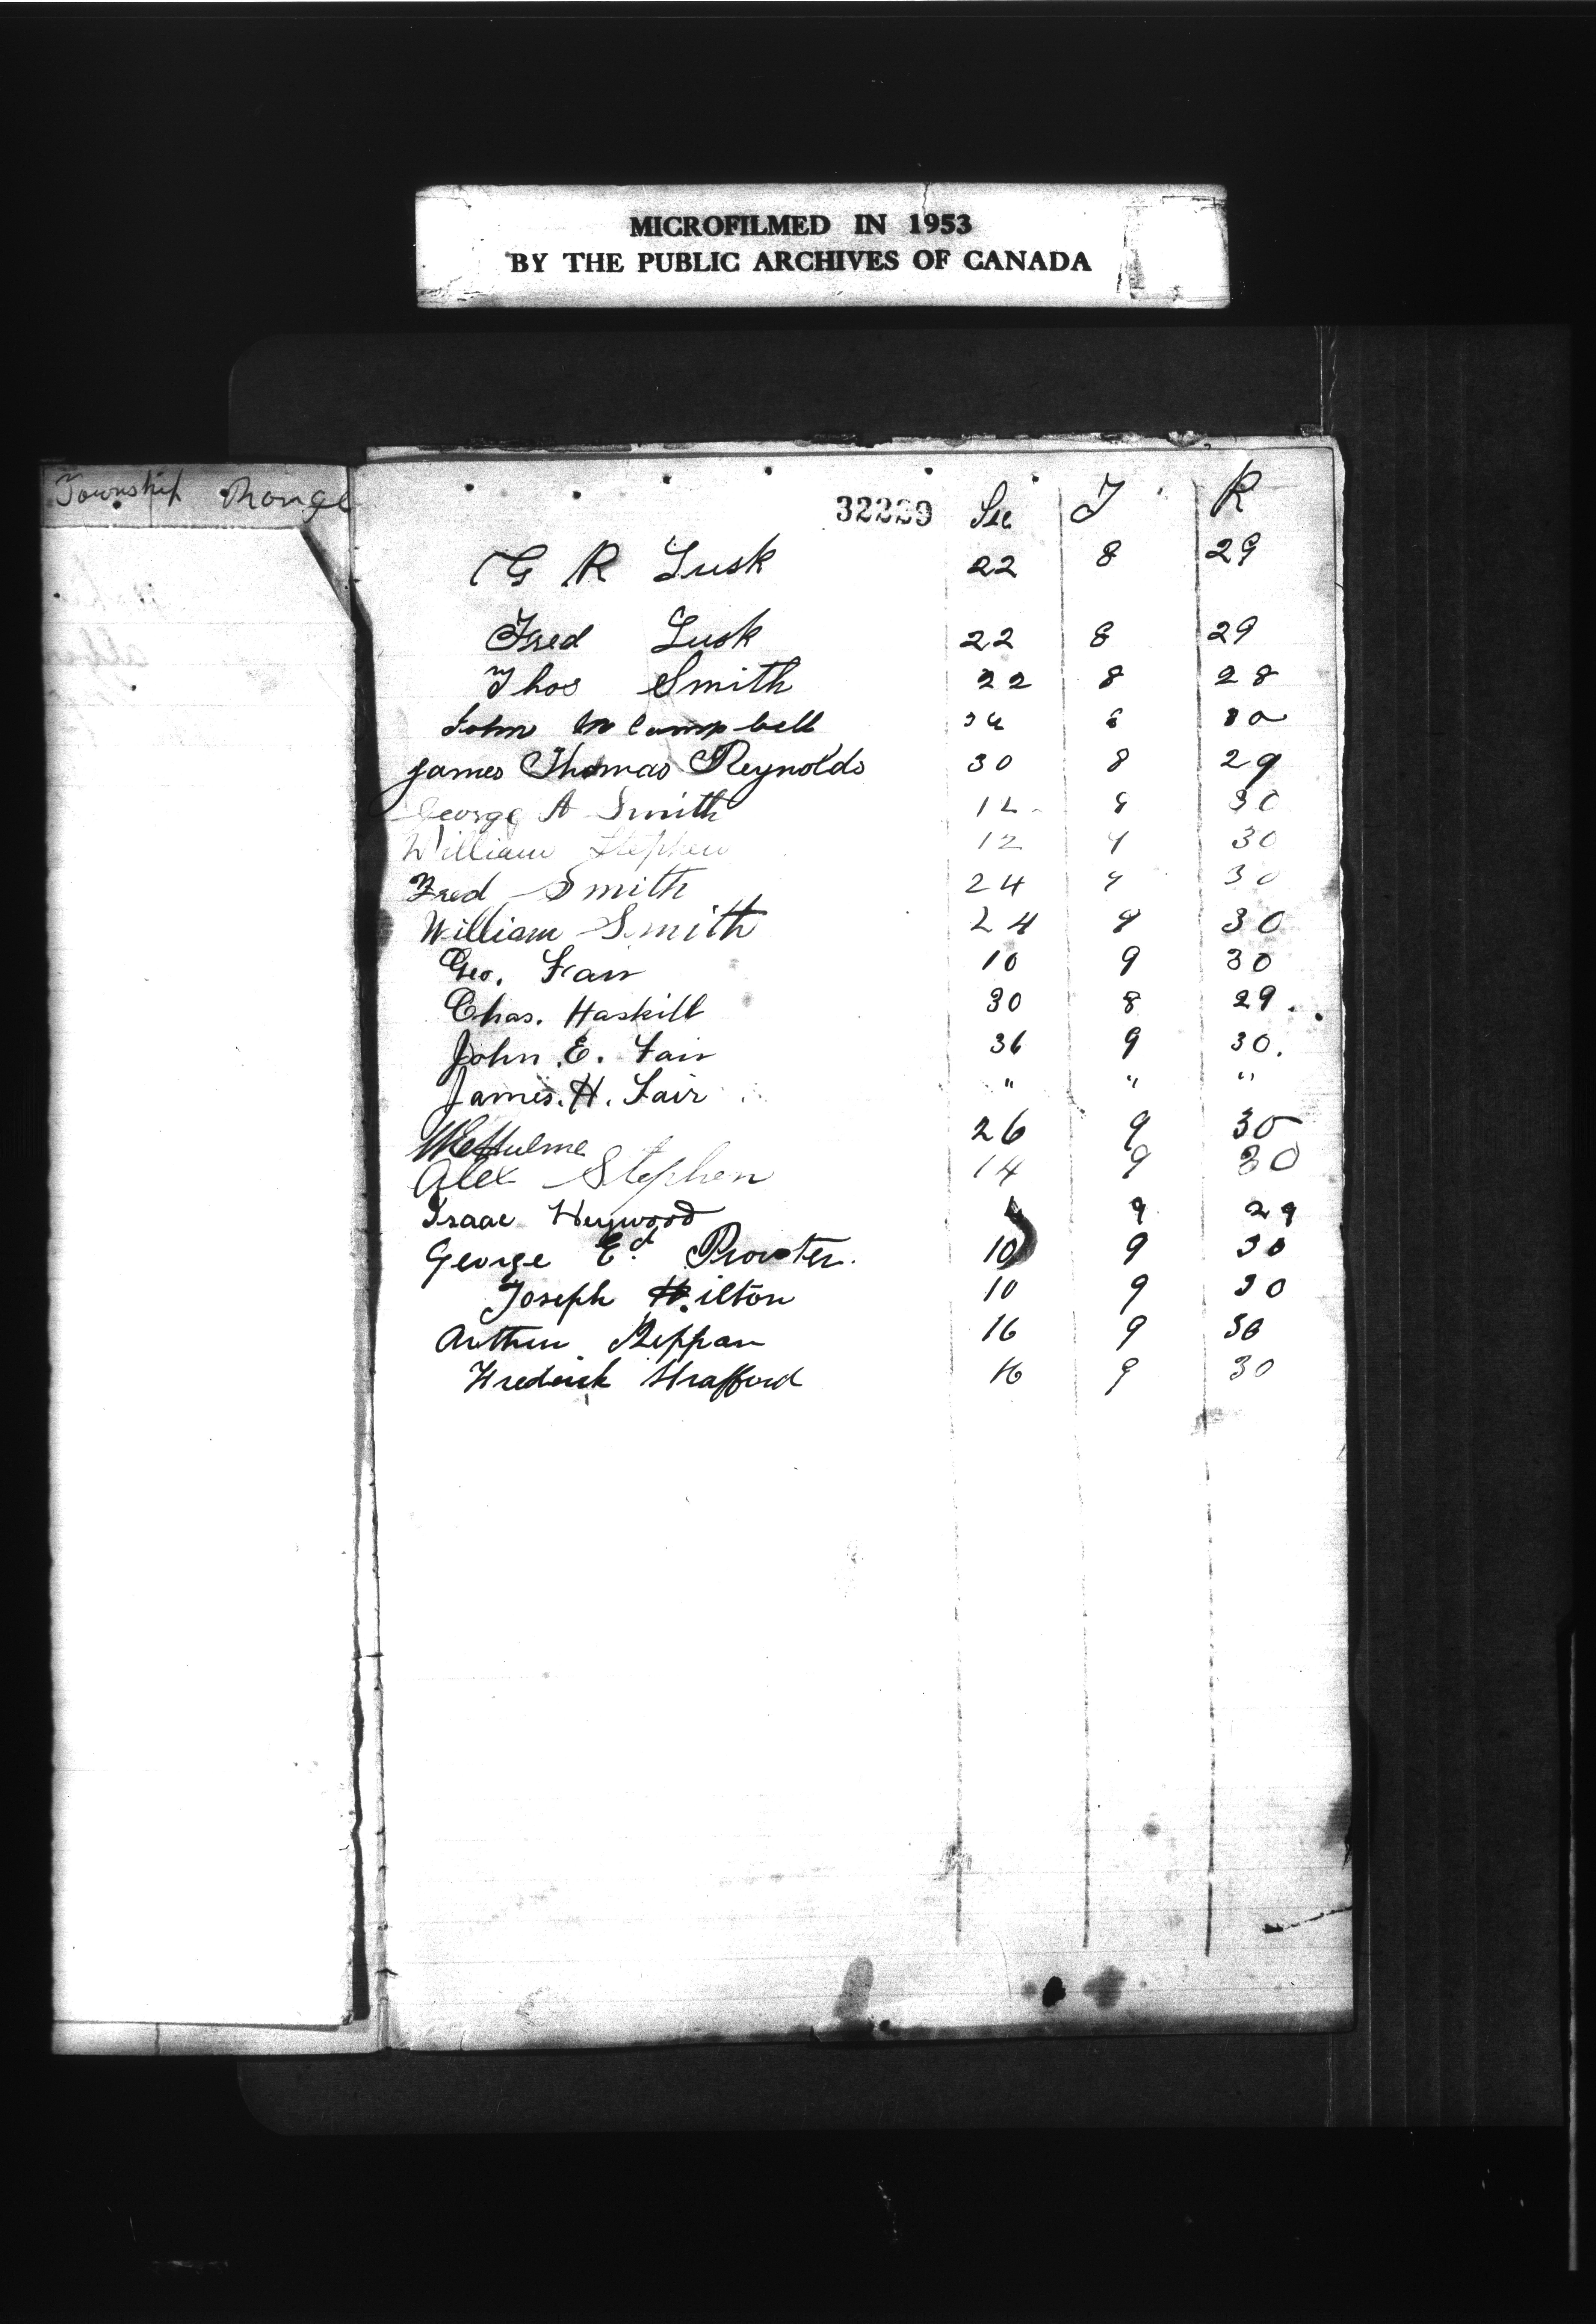 MICROFILMED IN 1953
BY THE PUBLIC ARCHIVES OF CANADA
Township Range
32229 Sec T R
G R Lusk 22 8 29
Fred Lusk 22 8 29
Thos Smith 22 8 28
John M Campbell 8 30
James Thomas Reynolds 30 8 29
George A Smith 12 8 30
William Stephen 12 30
Fred Smith 24 30
William Smith 24 8 30
Geo. Fair 10 9 30
Chas. Haskill 30 8 29.
John E. Fair 36 9 30.
James. H. Fair " " "
26 9 30
Alex Stephen 14 9 30
Isaac Heywood 9 29
George Ed. Prowter. 10 9 30
Joseph Hilton 10 9 30
Arthur 16 9 30
Frederick Strafford 16 9 30